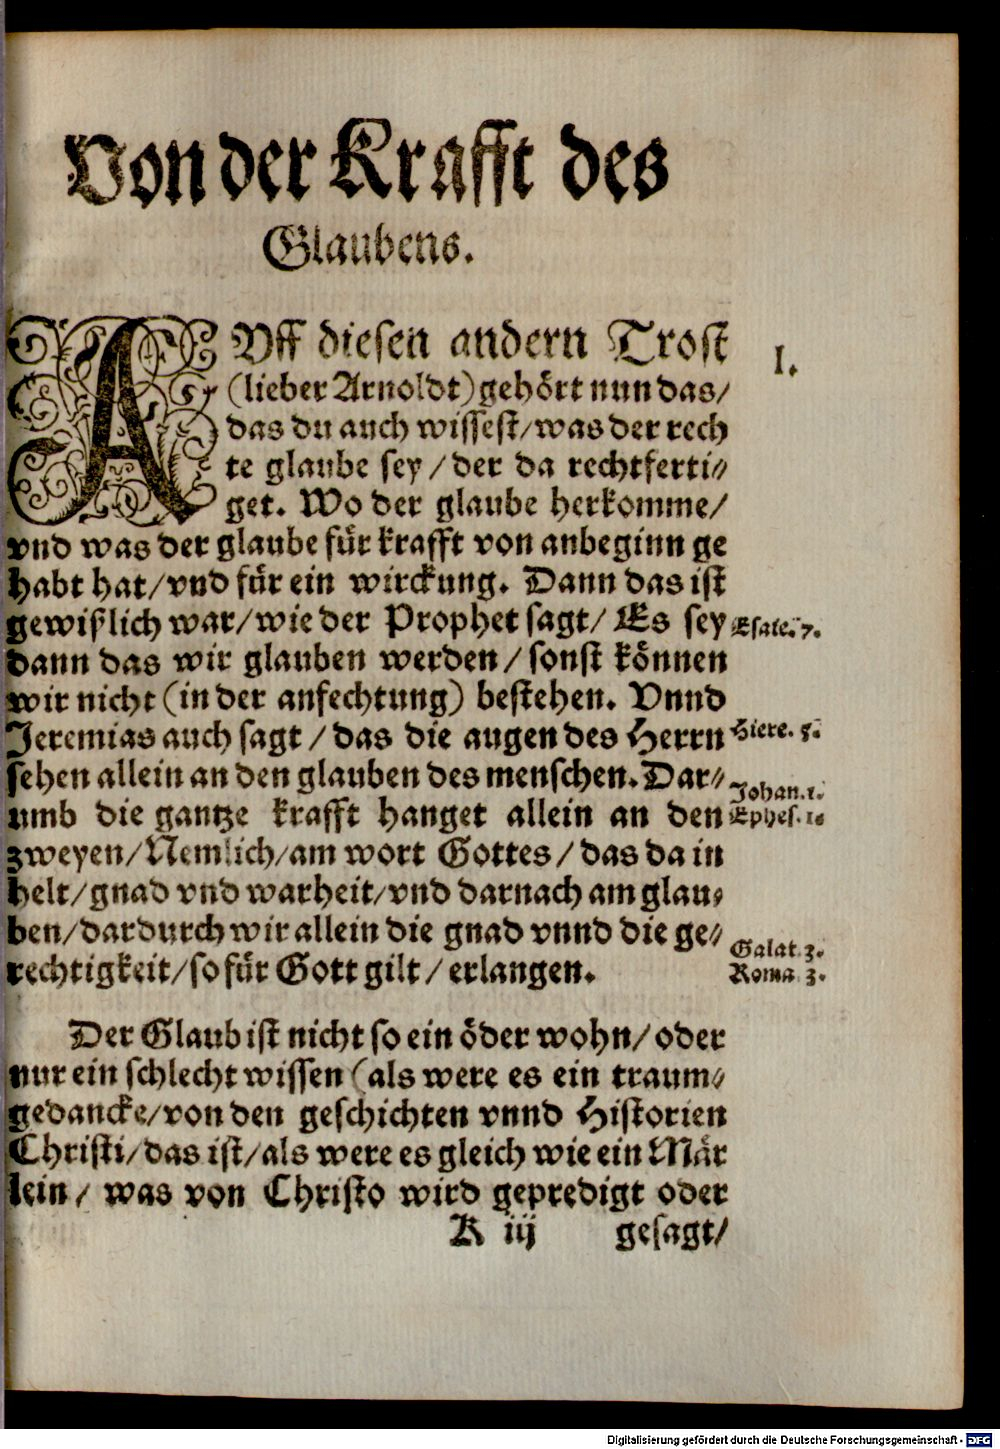 Von der Krafft des
Glaubens.
AVff diesen andern Trost
I.
(lieber Arnoldt) gehört nun das/
das du auch wissest/was der rech
te glaube sey/der da rechtferti⸗
get. Wo der glaube herkomme/
vnd was der glaube für krafft von anbeginn ge
habt hat/vnd für ein wirckung. Dann das ist
gewißlich war/wie der Prophet sagt/ Es sey
Esaie. 7.
dann das wir glauben werden/sonst können
wir nicht (in der anfechtung) bestehen. Vnnd
Jeremias auch sagt/das die augen des Herrn
Hiere. 5.
sehen allein an den glauben des menschen. Dar⸗
Johan. 1.
umb die gantze krafft hanget allein an den
Ephes. 1.
zweyen/Nemlich/am wort Gottes/das da in
helt/gnad vnd warheit/vnd darnach am glau⸗
ben/dardurch wir allein die gnad vnnd die ge⸗
Galat. 3.
rechtigkeit/so für Gott gilt/erlangen.
Roma. 3.
Der Glaub ist nicht so ein öder wohn/oder
nur ein schlecht wissen (als were es ein traum⸗
gedancke/von den geschichten vnnd Historien
Christi/das ist/als were es gleich wie ein Mär
lein/ was von Christo wird gepredigt oder
K iij gesagt/
Digitalisierung gefördert durch die Deutsche Forschungsgemeinschaft - DFG